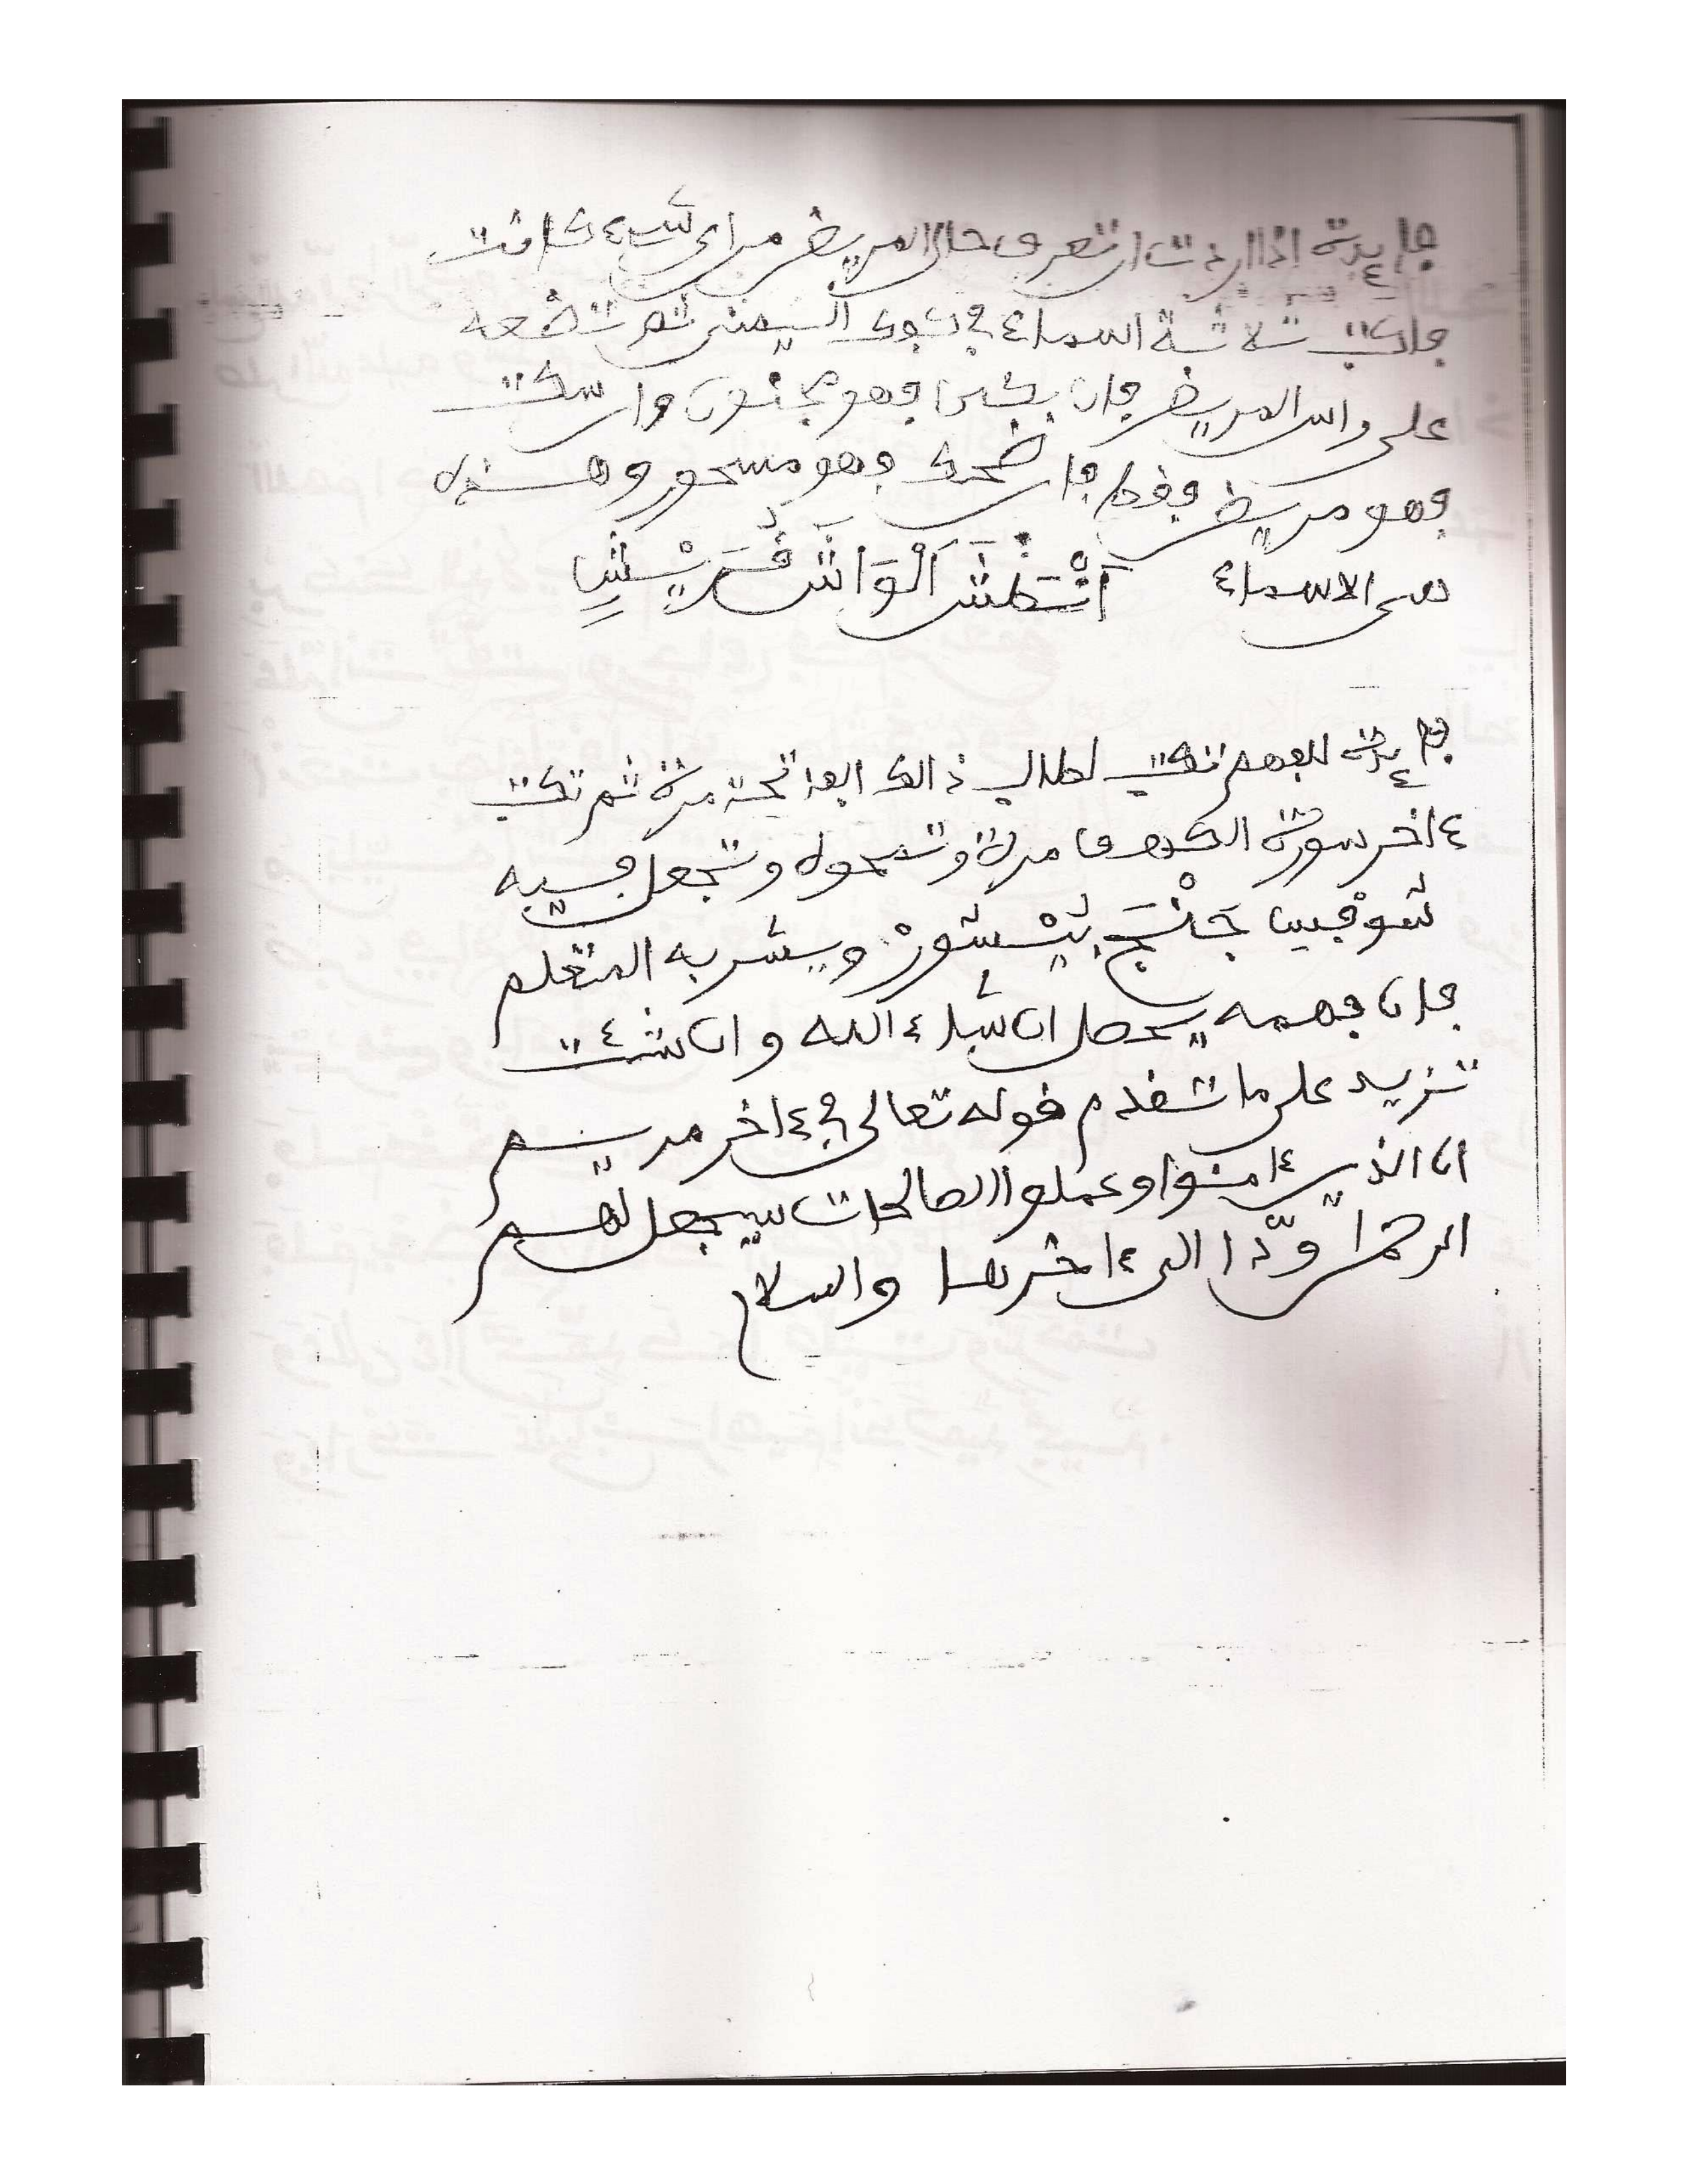 فايدة اذا اردت ان تعرف حال المريض من اي شيء كانت
فاكتب ثلاثة اسماء في كفك اليمنى ثم تضعه
على راس المريض فان بكى فهو مجنون وان سكت
فهو مريض فقط فان ضحك فهو مسحور وهذه
هي الاسماء
فايدة للفهم تكتب لطالب ذالك الفاتحة مرة ثم تكتب
ءاخر سورة الكهف مرة وتمحوه وتجعل فيه
ويشربه المتعلم
فان فهمه يحصل ان شاء الله وان شئت
تزيد على ما تقدم قوله تعالى في ءاخر مريم
ان الذين ءامنوا وعملوا الصالحات سيجعل لهم
الرحمن ودّا الى ءاخرها والسلام